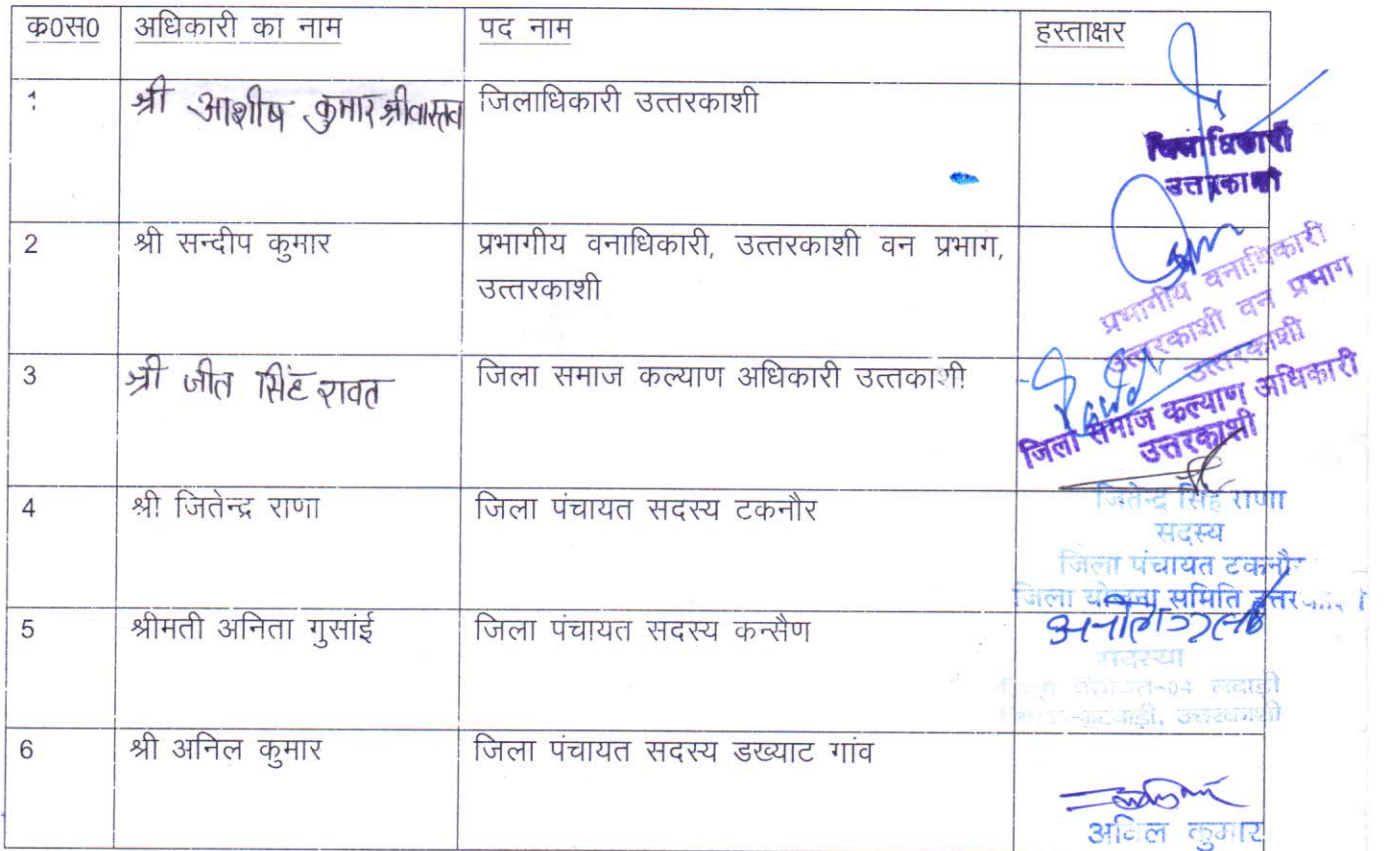 क0स0 अधिकारी का नाम पद नाम हस्ताक्षर
1 श्री आशीष कुमार श्रीवास्तव जिलाधिकारी उत्तरकाशी
जिलाधिकारी
उत्तरकाशी
2 श्री सन्दीप कुमार प्रभागीय वनाधिकारी, उत्तरकाशी वन प्रभाग,
उत्तरकाशी
प्रभागीय वनाधिकारी
उत्तरकाशी वन प्रभाग
उत्तरकाशी
3 श्री जीत सिंह रावत जिला समाज कल्याण अधिकारी उत्तकाशी
जिला समाज कल्याण अधिकारी
उत्तरकाशी
4 श्री जितेन्द्र राणा जिला पंचायत सदस्य टकनौर
जितेन्द्र सिंह राणा
सदस्य
जिला पंचायत टकनौर
जिला योजना समिति उत्तरकाशी
5 श्रीमती अनिता गुसांई जिला पंचायत सदस्य कन्सैण
सदस्या
6 श्री अनिल कुमार जिला पंचायत सदस्य डख्याट गांव
अनिल कुमार